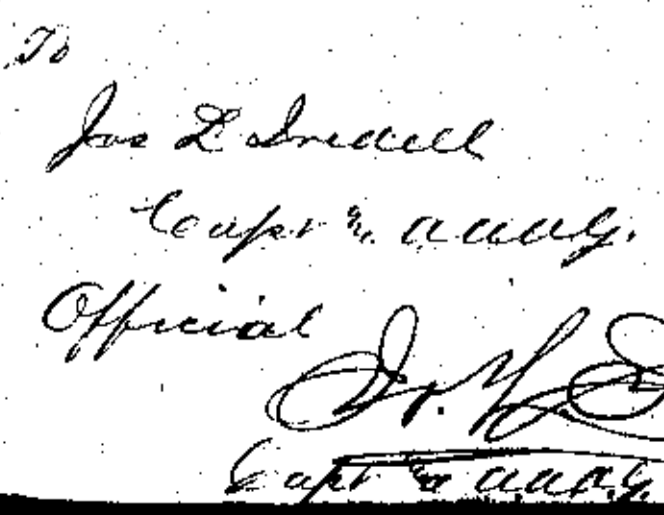 To
Jas L Iredell
Capt & AAAG.
Official
Capt & AAAG.